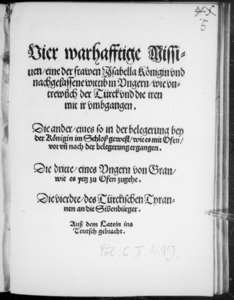 Vier warhafftige Missi-
uen / eine der frawen Isabella Königin vnd
nachgelassene witib in Vngern / wie vn-
trewlich der Türck vnd die iren
mit ir vmbgangen.
Die ander / eines so in der belegerung bey
der Königin im Schloß gewest / wie es mit Ofen /
vor vñ nach der belegerung ergangen.
Die dritte / eines Vngern von Gran /
wie es yetz zu Ofen zugehe.
Die vierdte / des Türckischen Tyran-
nen an die Sibenbürger.
Auß dem Latein ins
Teutsch gebracht.